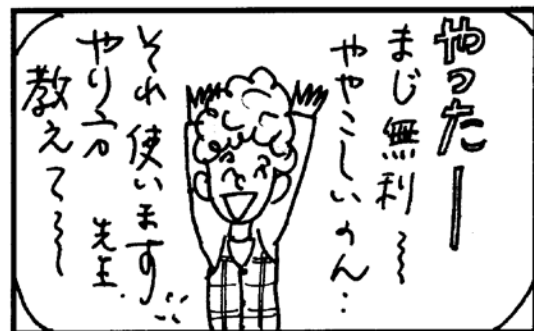 やったー
まじ無利〜
ややこしいのん‥
それ使います
やり方
先生
教えて〜